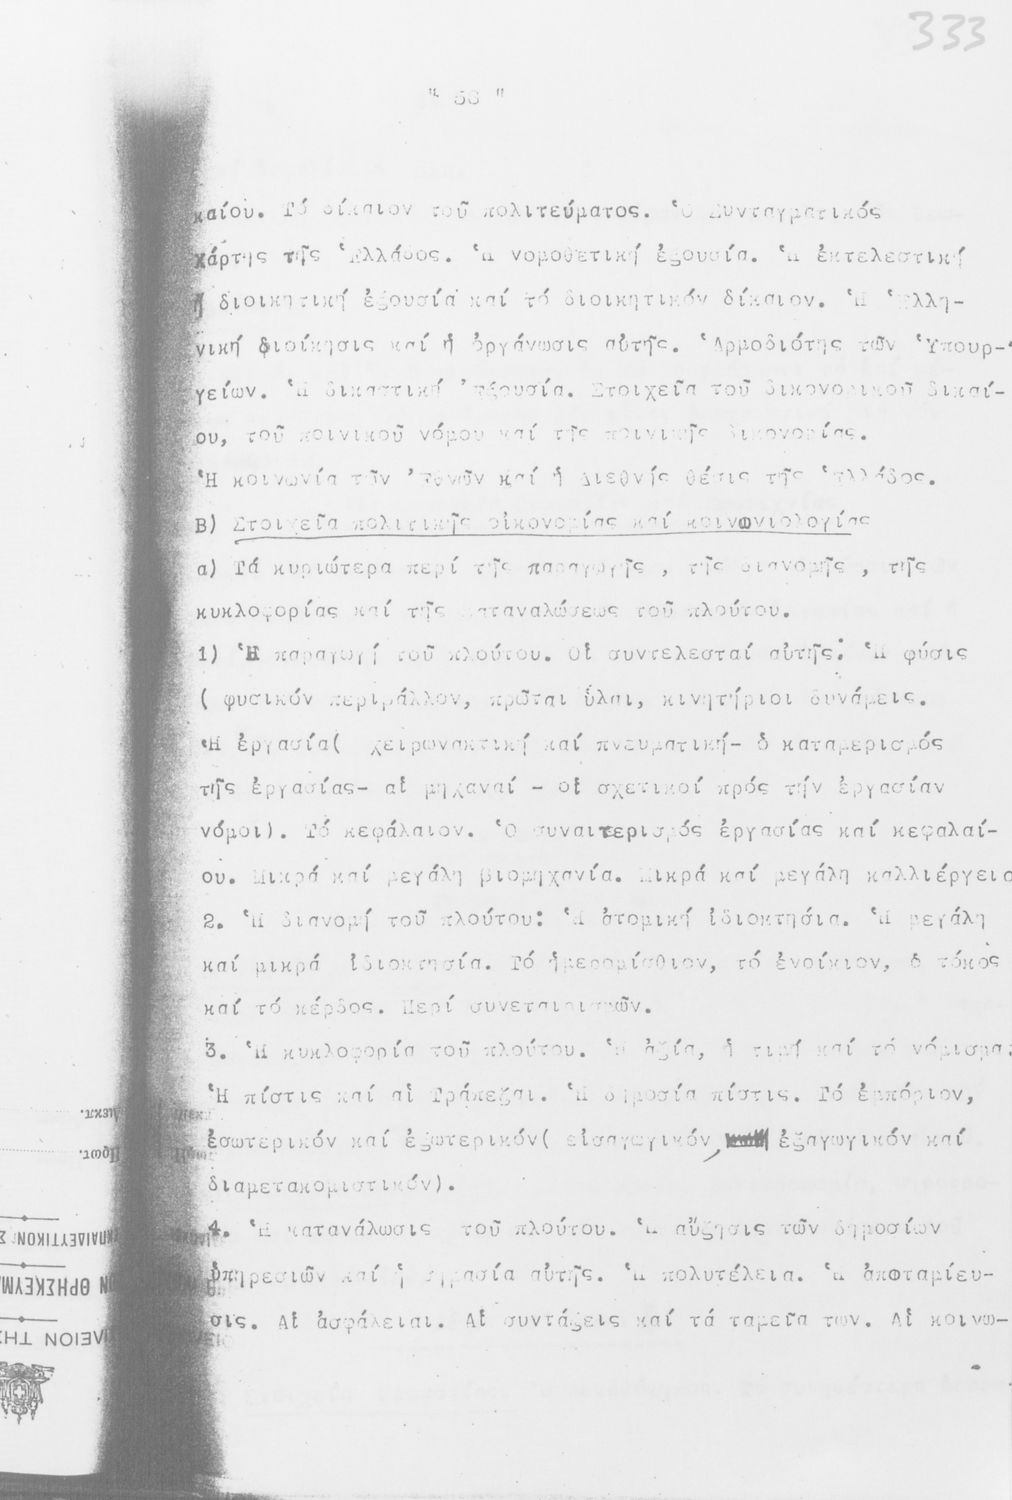 333
" 56 "
καίου. Τό δίκαιον τοῦ πολιτεύματος. Ὁ Συνταγματικός
χάρτης τῆς Ἑλλάδος. Ἡ νομοθετική ἐξουσία. Ἡ ἐκτελεστική
ἤ διοικητική ἐξουσία καί τό διοικητικόν δίκαιον. Ἡ Ἑλλη-
νική διοίκησις καί ἡ ὀργάνωσις αὐτῆς. Ἁρμοδιότης τῶν Ὑπουρ-
γείων. Ἡ δικαστική ἐξουσία. Στοιχεῖα τοῦ δικονομικοῦ δικαί-
ου, τοῦ ποινικοῦ νόμου καί τῆς ποινικῆς δικονομίας.
Ἡ κοινωνία τῶν Ἐθνῶν καί ἡ Διεθνής θέσις τῆς Ἑλλάδος.
Β) Στοιχεῖα πολιτικῆς οἰκονομίας καί κοινωνιολογίας
α) Τά κυριώτερα περί τῆς παραγωγῆς , τῆς διανομῆς , τῆς
κυκλοφορίας καί τῆς καταναλώσεως τοῦ πλούτου.
1) Ἡ παραγωγή τοῦ πλούτου. Οἱ συντελεσταί αὐτῆς: Ἡ φύσις
( φυσικόν περιβάλλον, πρῶται ὗλαι, κινητήριοι δυνάμεις.
Ἡ ἐργασία( χειρωνακτική καί πνευματική- ὁ καταμερισμός
τῆς ἐργασίας- αἱ μηχαναί - οἱ σχετικοί πρός τήν ἐργασίαν
νόμοι). Τό κεφάλαιον. Ὁ συναιτερισμός ἐργασίας καί κεφαλαί-
ου. Μικρά καί μεγάλη βιομηχανία. Μικρά καί μεγάλη καλλιέργεια
2. Ἡ διανομή τοῦ πλούτου: Ἡ ἀτομική ἰδιοκτησία. Ἡ μεγάλη
καί μικρά ἰδιοκτησία. Τό ἡμερομίσθιον, τό ἐνοίκιον, ὁ τόκος
καί τό κέρδος. Περί συνεταιρισμῶν.
3. Ἡ κυκλοφορία τοῦ πλούτου. Ἡ ἀξία, ἡ τιμή καί τό νόμισμα:
Ἡ πίστις καί αἱ Τράπεζαι. Ἡ δημοσία πίστις. Τό ἐμπόριον,
ἐσωτερικόν καί ἐξωτερικόν( εἰσαγωγικόν, ἐξαγωγικόν καί
διαμετακομιστικόν).
4. Ἡ κατανάλωσις τοῦ πλούτου. Ἡ αὔξησις τῶν δημοσίων
ὑπηρεσιῶν καί ἡ σημασία αὐτῆς. Ἡ πολυτέλεια. Ἡ ἀποταμίευ-
σις. Αἱ ἀσφάλειαι. Αἱ συντάξεις καί τά ταμεῖα των. Αἱ κοινω-